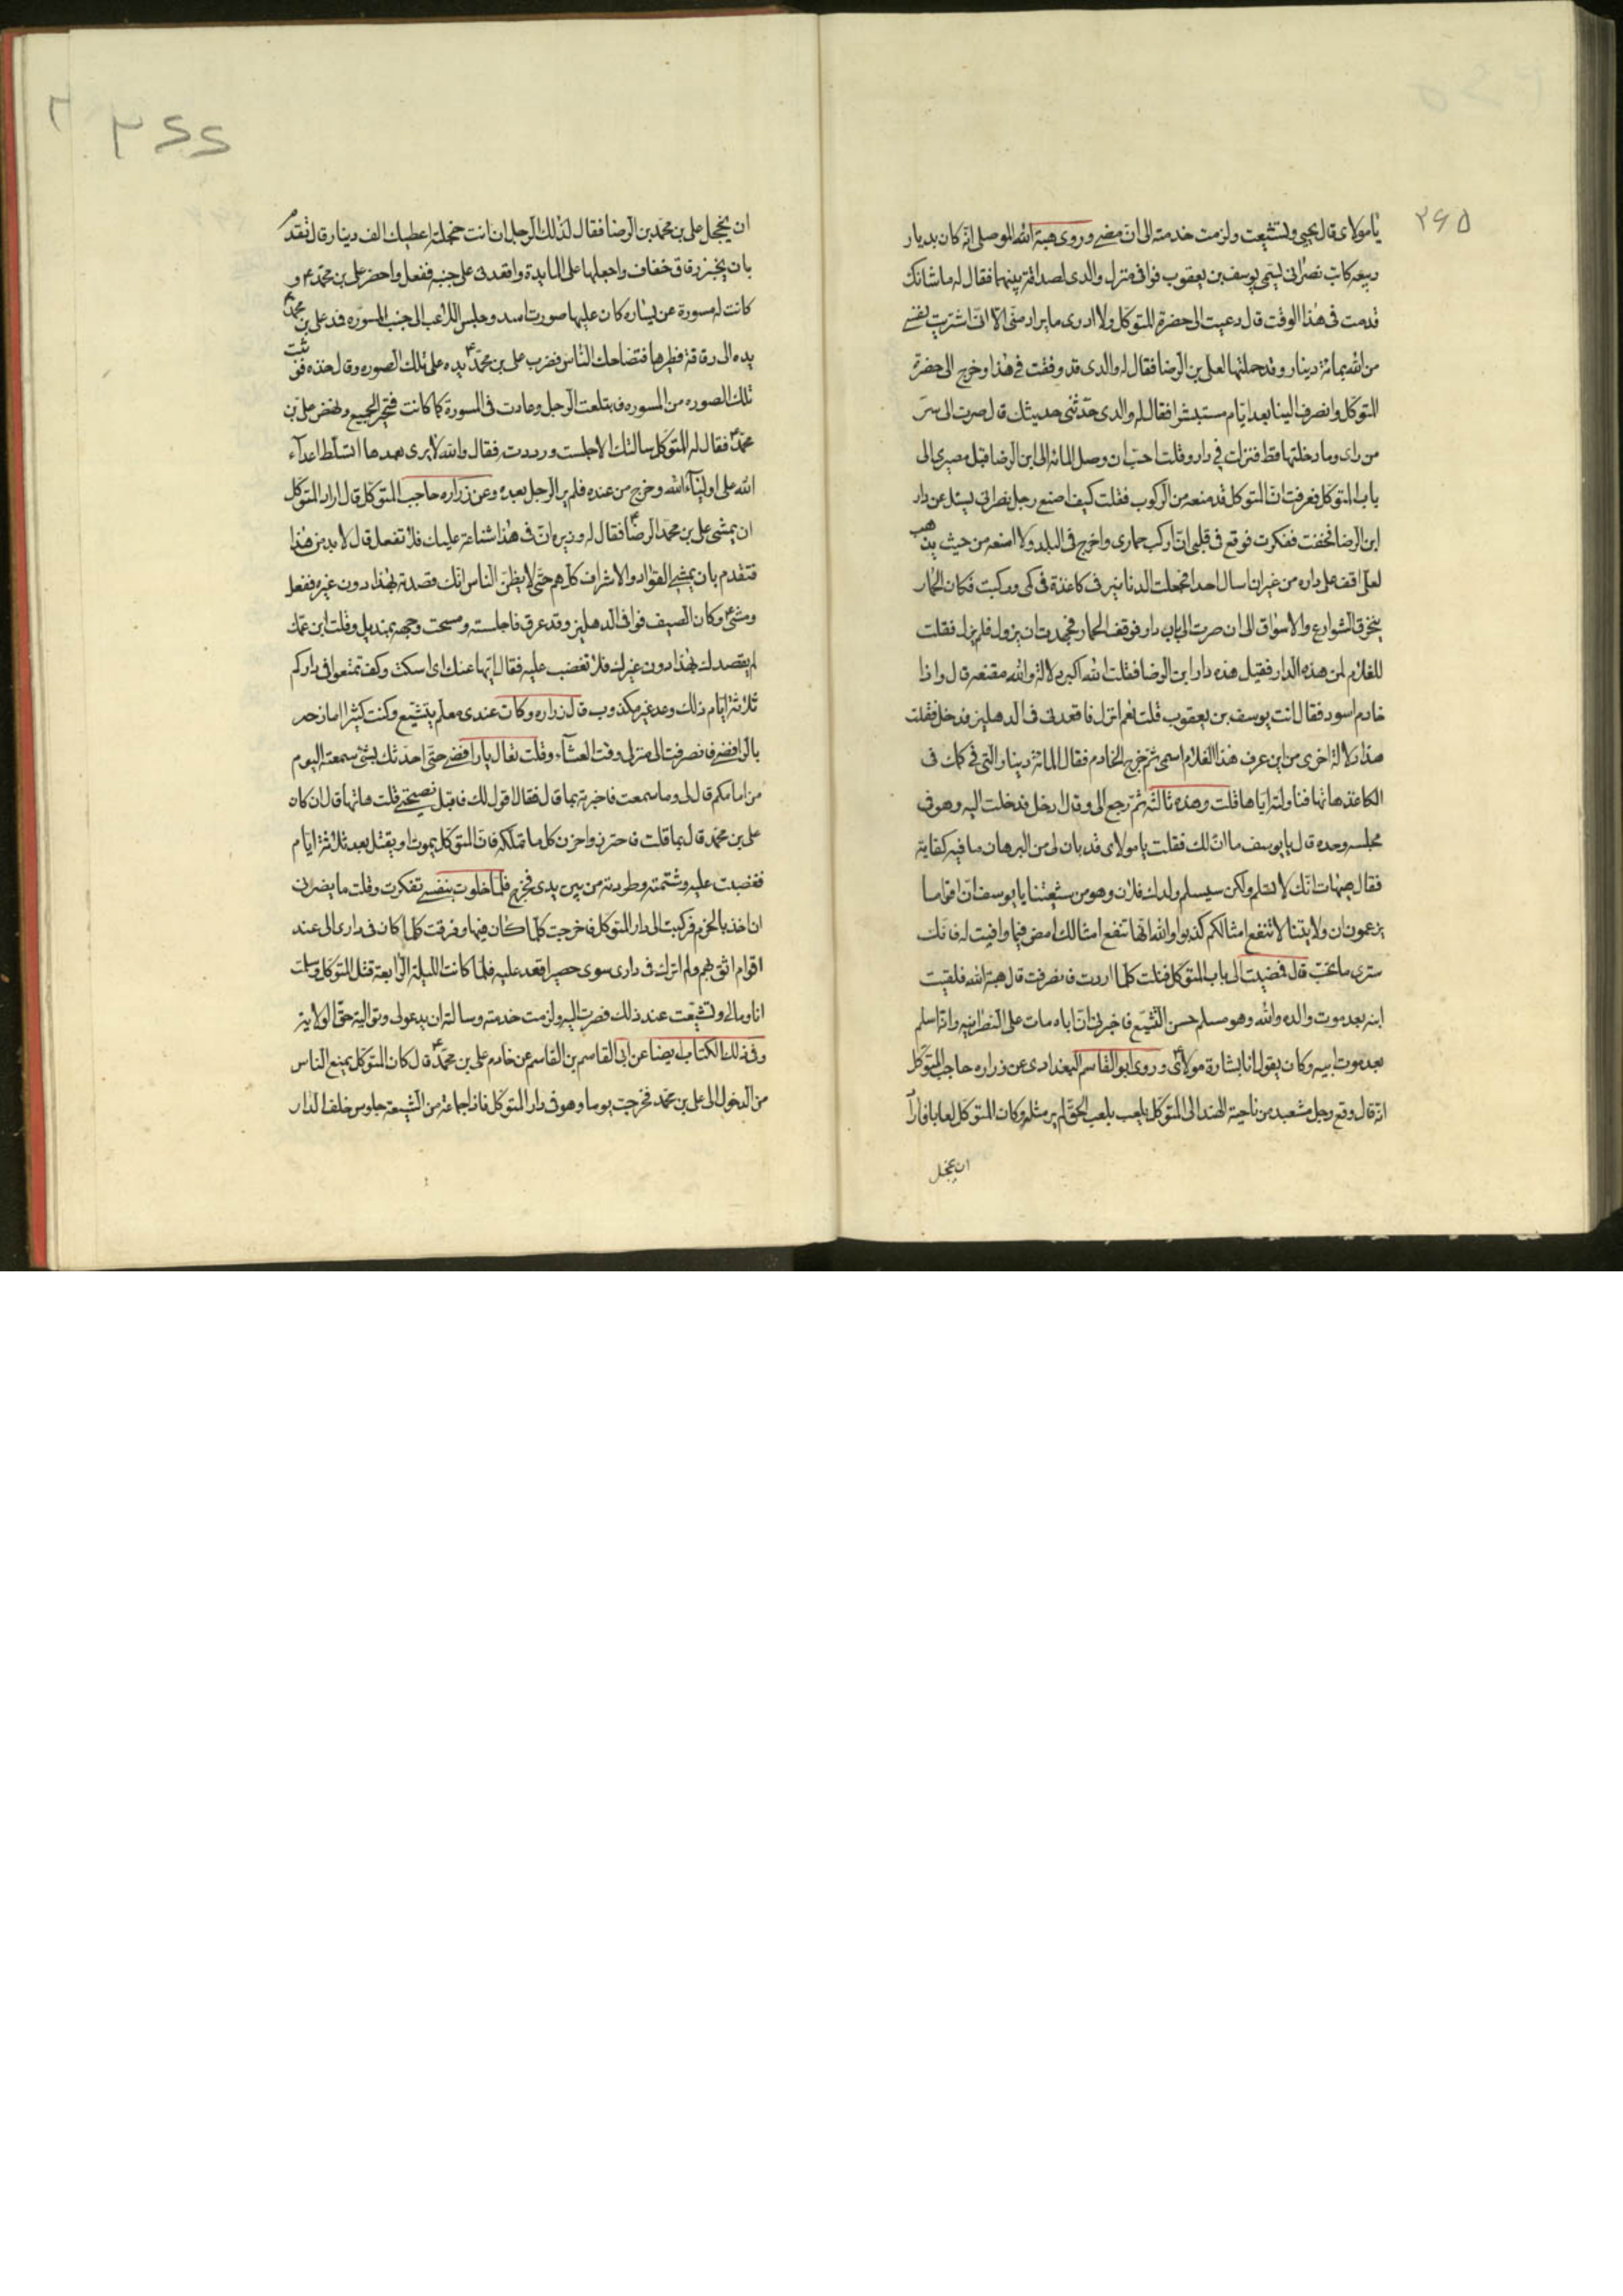 ۲۶۵
يا مولاى قال يحيى وتشيعت ولزمت خدمته الى ان مضى وروى هبة الله الموصلى انه كان بديار
ربيعه كاتب نصرانى يسمى يوسف بن يعقوب فوافى منزل والدى لصداقة بينهما فقال له ما شانك
قدمت فى هذا الوقت قال دعيت الى حضرة المتوكل ولا ادرى ما يراد منى الا انى اشتريت نفسى
من الله بمائة دينار وقد حملتها لعلى بن الرضا فقال له والدى قد وفقت فى هذا وخرج الى حضرة
المتوكل وانصرف الينا بعد ايام مستبشرا فقال له والدى حدثنى حديثك قال صرت الى سر
من راى وما دخلتها قط فنزلت فى دار وقلت احب ان وصل المائه الى ابن الرضا قبل مصيرى الى
باب المتوكل فعرفت ان المتوكل قد منعه من الركوب فقلت كيف اصنع رجل نصرانى يسئل عن دار
ابن الرضا فخفت ففكرت فوقع فى قلبى ان اركب حمارى واخرج فى البلد ولا امنعه من حيث يذهب
لعلى اقف على داره من غير ان اسال احدا فجعلت الدنانير فى كاغذة فى كمى وركبت فكان الحمار
يتخرق الشوارع والاسواق الى ان صرت الى باب دار فوقف الحمار فجهدت ان يزول فلم يزل فقلت
للغلام لمن هذه الدار فقيل هذه دار ابن الرضا فقلت الله اكبر دلالة والله مقنعه قال واذا
خادم اسود فقال انت يوسف بن يعقوب قلت نعم انزل فاقعدنى فى الدهليز فدخل فقلت
هذا دلالة اخرى من اين عرف هذا الغلام اسمى ثم خرج الخادم فقال المائة دينار التى فى كمك فى
الكاغذ هاتها فناولته اياها قلت وهذه ثالثه ثم رجع الى وقال ادخل فدخلت اليه وهو فى
مجلسه وحده قال يا يوسف ما ان لك فقلت يا مولاى قد بان لى من البرهان ما فيه كفايه
فقال هيهات انك لا تسلم ولكن سيسلم ولدك فلان وهو من شيعتنا يا يوسف ان اقواما
يزعمون ان ولايتنا لا تنفع امثالكم كذبوا والله انها تنفع امثالك امض فيما وافيت له فانك
سترى ما تحب قال فمضيت الى باب المتوكل فنلت كلما اردت فانصرفت قال هبة الله فلقيت
ابنه بعد موت والده والله وهو مسلم حسن التشيع فاخبرنى ان اباه مات على النصرانيه وانه اسلم
بعد موت ابيه وكان يقول انا بشارة مولاى وروى ابو القاسم البغدادى عن زراره حاجب المتوكل
انه قال وقع رجل مشعبد من ناحية الهند الى المتوكل يلعب بلعب الحق لم ير مثله وكان المتوكل لعابا فاراد
ان يخجل
ان يخجل على بن محمد بن الرضا فقال لذلك الرجل ان انت خجلته اعطيك الف دينار قال تقدم
بان يخبز رقاق خفاف واجعلها على المايدة واقعدنى على جنبه ففعل واحضر على بن محمد ع و
كانت له مسورة عن يساره كان عليها صورت اسد وجلس اللاعب الى جنب المسوره فمد على بن محمد ع
يده الى رقاقة فطيرها فتضاحك الناس فضرب على بن محمد ع يده على تلك الصوره وقال خذه فوثبت
تلك الصوره من المسوره فابتلعت الرجل وعادت فى المسورة كما كانت فتحير الجميع ونهض على بن
محمد ع فقال له المتوكل سالتك الا جلست ورددته فقال والله لا يرى بعدها اتسلط اعداء
الله على اولياء الله وخرج من عنده فلم ير الرجل بعده وعن زراره حاجب المتوكل قال اراد المتوكل
ان يمشى على بن محمد الرضا ع فقال له وزيره ان فى هذا شناعة عليك فلا تفعل قال لا بد من هذا
فتقدم بان يمشى القواد والاشراف كلهم حتى لا يظن الناس انك قصدته بهذا دون غيره ففعل
ومشى ع وكان الصيف فوافى الدهليز وقد عرق فاجلسته ومسحت وجهه بمنديل وقلت ابن عمك
لم يقصدك بهذا دون غيرك فلا تغضب عليه فقال ايها عنك اى اسكت وكف تمتعوا فى داركم
ثلاثة ايام ذلك وعد غير مكذوب قال زراره وكان عندى معلم يتشيع وكنت كثيرا امازحه
بالرافضى فانصرفت الى منزلى وقت العشاء وقلت تعال يا رافضى حتى احدثك بشئ سمعته اليوم
من امامكم قال لى وما سمعت فاخبرته بما قال فقال اقول لك فاقبل نصيحتى قلت هاتها قال ان كان
على بن محمد قال بما قلت فاحترز واخزن كل ما تملكه فان المتوكل يموت او يقتل بعد ثلاثة ايام
فغضبت عليه وشتمته وطردته من بين يدى فخرج فلما خلوت بنفسى تفكرت وقلت ما يضرنى
ان اخذ بالحزم فركبت الى دار المتوكل فاخرجت كلما كان فيها وفرقت كلما كان فى دارى الى عند
اقوام اثق بهم ولم اترك فى دارى سوى حصير اقعد عليه فلما كانت الليلة الرابعة قتل المتوكل وسلمت
انا ومالى وتشيعت عند ذلك فصرت اليه ولزمت خدمته وسالته ان يدعو لى وتواليته حق الولاية
وفى ذلك الكتاب ايضا عن ابى القاسم بن القاسم عن خادم على بن محمد ع قال كان المتوكل يمنع الناس
من الدخول الى على بن محمد فخرجت يوما وهو فى دار المتوكل فاذا جماعة من الشيعة جلوس خلف الدار